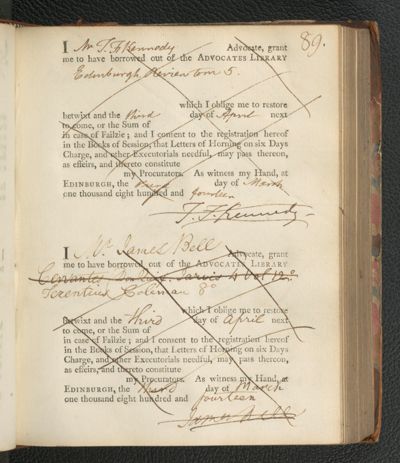 89.
I Mr T. F. Kennedy Advocate, grant
me to have borrowed out of the ADVOCATES LIBRARY
Edinburgh Review tom 5.
which I oblige me to restore
betwixt and the third day of April next
to come, or the Sum of
in case of Failzie; and I consent to the registration hereof
in the Books of Session, that Letters of Horning on six Days
Charge, and other Executorials needful, may pass thereon,
as effeirs, and thereto constitute
my Procurators. As witness my Hand, at
EDINBURGH, the third day of March
one thousand eight hundred and fourteen
T. F. Kennedy
I Mr James Bell Advocate, grant
me to have borrowed out of the ADVOCATES LIBRARY
Cervantes Don Quix. Jarvis 4 Vol 12o.
Terentius Coleman 8o
which I oblige me to restore
betwixt and the third day of April next
to come, or the Sum of
in case of Failzie; and I consent to the registration hereof
in the Books of Session, that Letters of Horning on six Days
Charge, and other Executorials needful, may pass thereon,
as effeirs, and thereto constitute
my Procurators. As witness my Hand, at
EDINBURGH, the third day of March
one thousand eight hundred and fourteen
James Bell